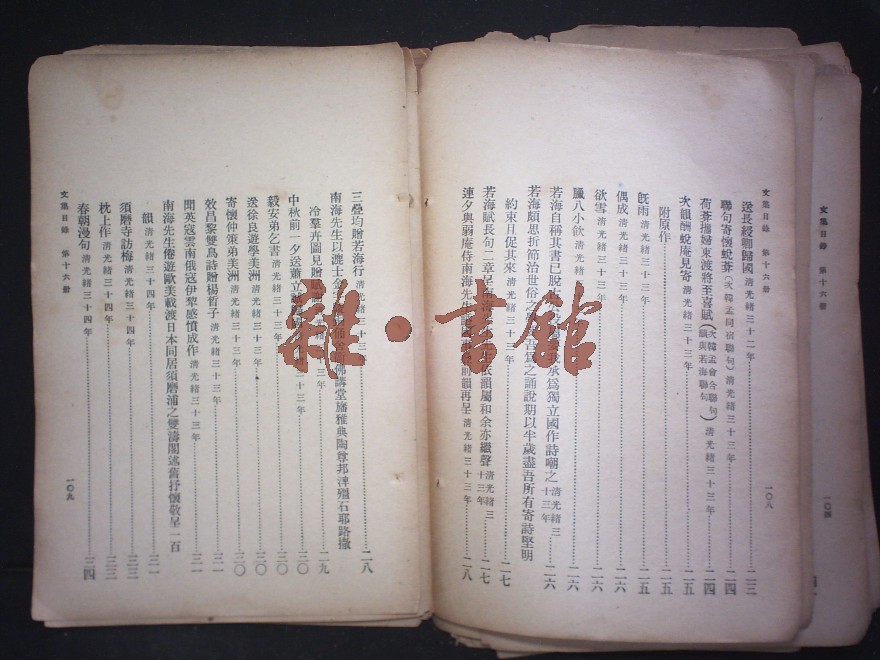 文集目錄 第十六册
一〇四
文集目錄 第十六册
一〇八
送長綬卿歸國 清光緒三十二年 二三
聯句寄懷蛻菴(次韓孟同宿聯句)清光緒三十三年 二四
荷菴攜婦東渡將至喜賦(次韓孟會合聯句韻與若海聯句)清光緒三十三年 二四
次韻酬蛻庵見寄 清光緒三十三年 二五
附原作 二五
旣雨 清光緒三十三年 二五
偶成 清光緒三十三年 二六
欲雪 清光緒三十三年 二六
臘八小飲 清光緒三十三年 二六
若海自稱其書已脫 承爲獨立國作詩嘲之 清光緒三十三年 二六
若海頗思折節治世俗之 爲之誦說期以半歲盡吾所有寄詩堅明
約束且促其來 清光緒三十三年 二七
若海賦長句二章呈南海 依韻屬和余亦繼聲 清光緒三十三年 二七
連夕與弱庵侍南海先生 前韻再呈 清光緒三十三年 二八
三疊均贈若海行 清光緒三十三年 二八
南海先生以漉士 佛講堂 雅典陶尊邦淠殭石耶路撒
冷羣卉圖見贈賦 三年 二九
中秋前一夕送蕭立 三十三年 三〇
毅安弟乞書 清光緒三十三年 三〇
送徐良遊學美洲 清光緒三十三年 三〇
寄懷仲策弟美洲 清光緒三十三年 三〇
效昌黎雙鳥詩贈楊晳子 清光緒三十三年 三一
聞英寇雲南俄寇伊犁感憤成作 清光緒三十三年 三一
南海先生倦遊歐美載渡日本同居須磨浦之雙濤閣述舊抒懷敬呈一百
韻 清光緒三十四年 三一
須磨寺訪梅 清光緒三十四年 三三
枕上作 清光緒三十四年 三三
春朝漫句 清光緒三十四年 三四
文集目錄 第十六册
一〇九
雜·書館